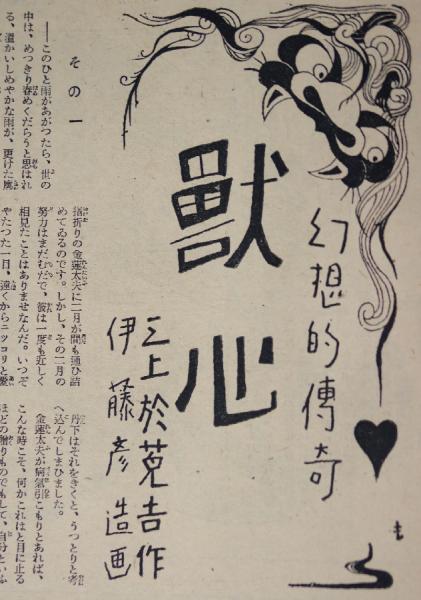 幻想的傳奇
獸心
三上於菟吉作
伊藤彦造画
その一
――このひと雨があがつたら、世の
中は、めつきり春めくだらうと思はれ
る、温かいしめやかな雨が、更けた
指折りの金蓮太夫に二月が間も通ひ詰
めてゐるのです。しかし、その二月の
努力はまだむだで、彼は一度も近しく
相見たことはありませなんだ。いつぞ
やたつた一日、遠くからニツコリと
丹下はそれをきくと、うつとりと考
へ込んでしまひました。
金蓮太夫が病氣引こもりとあれば、
こんな時こそ、何かこれはと目に止る
ほどの贈りものでもして、自分といふ